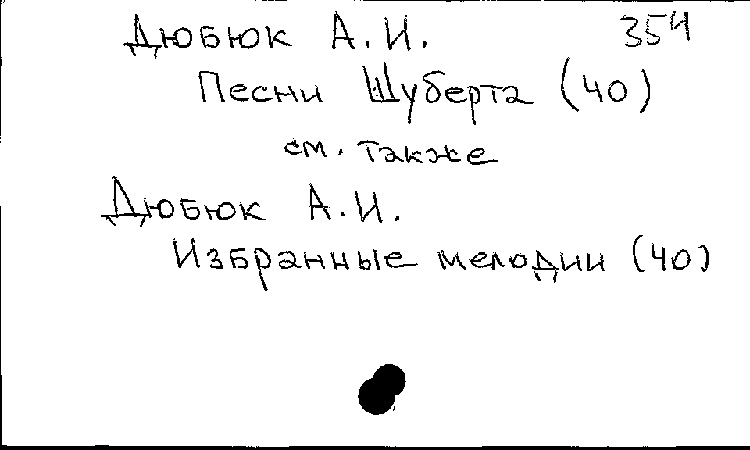 Дюбюк А.И. 354
Песни Шуберта (40)
см. также
Дюбюк А.И.
Избранные мелодии (40)